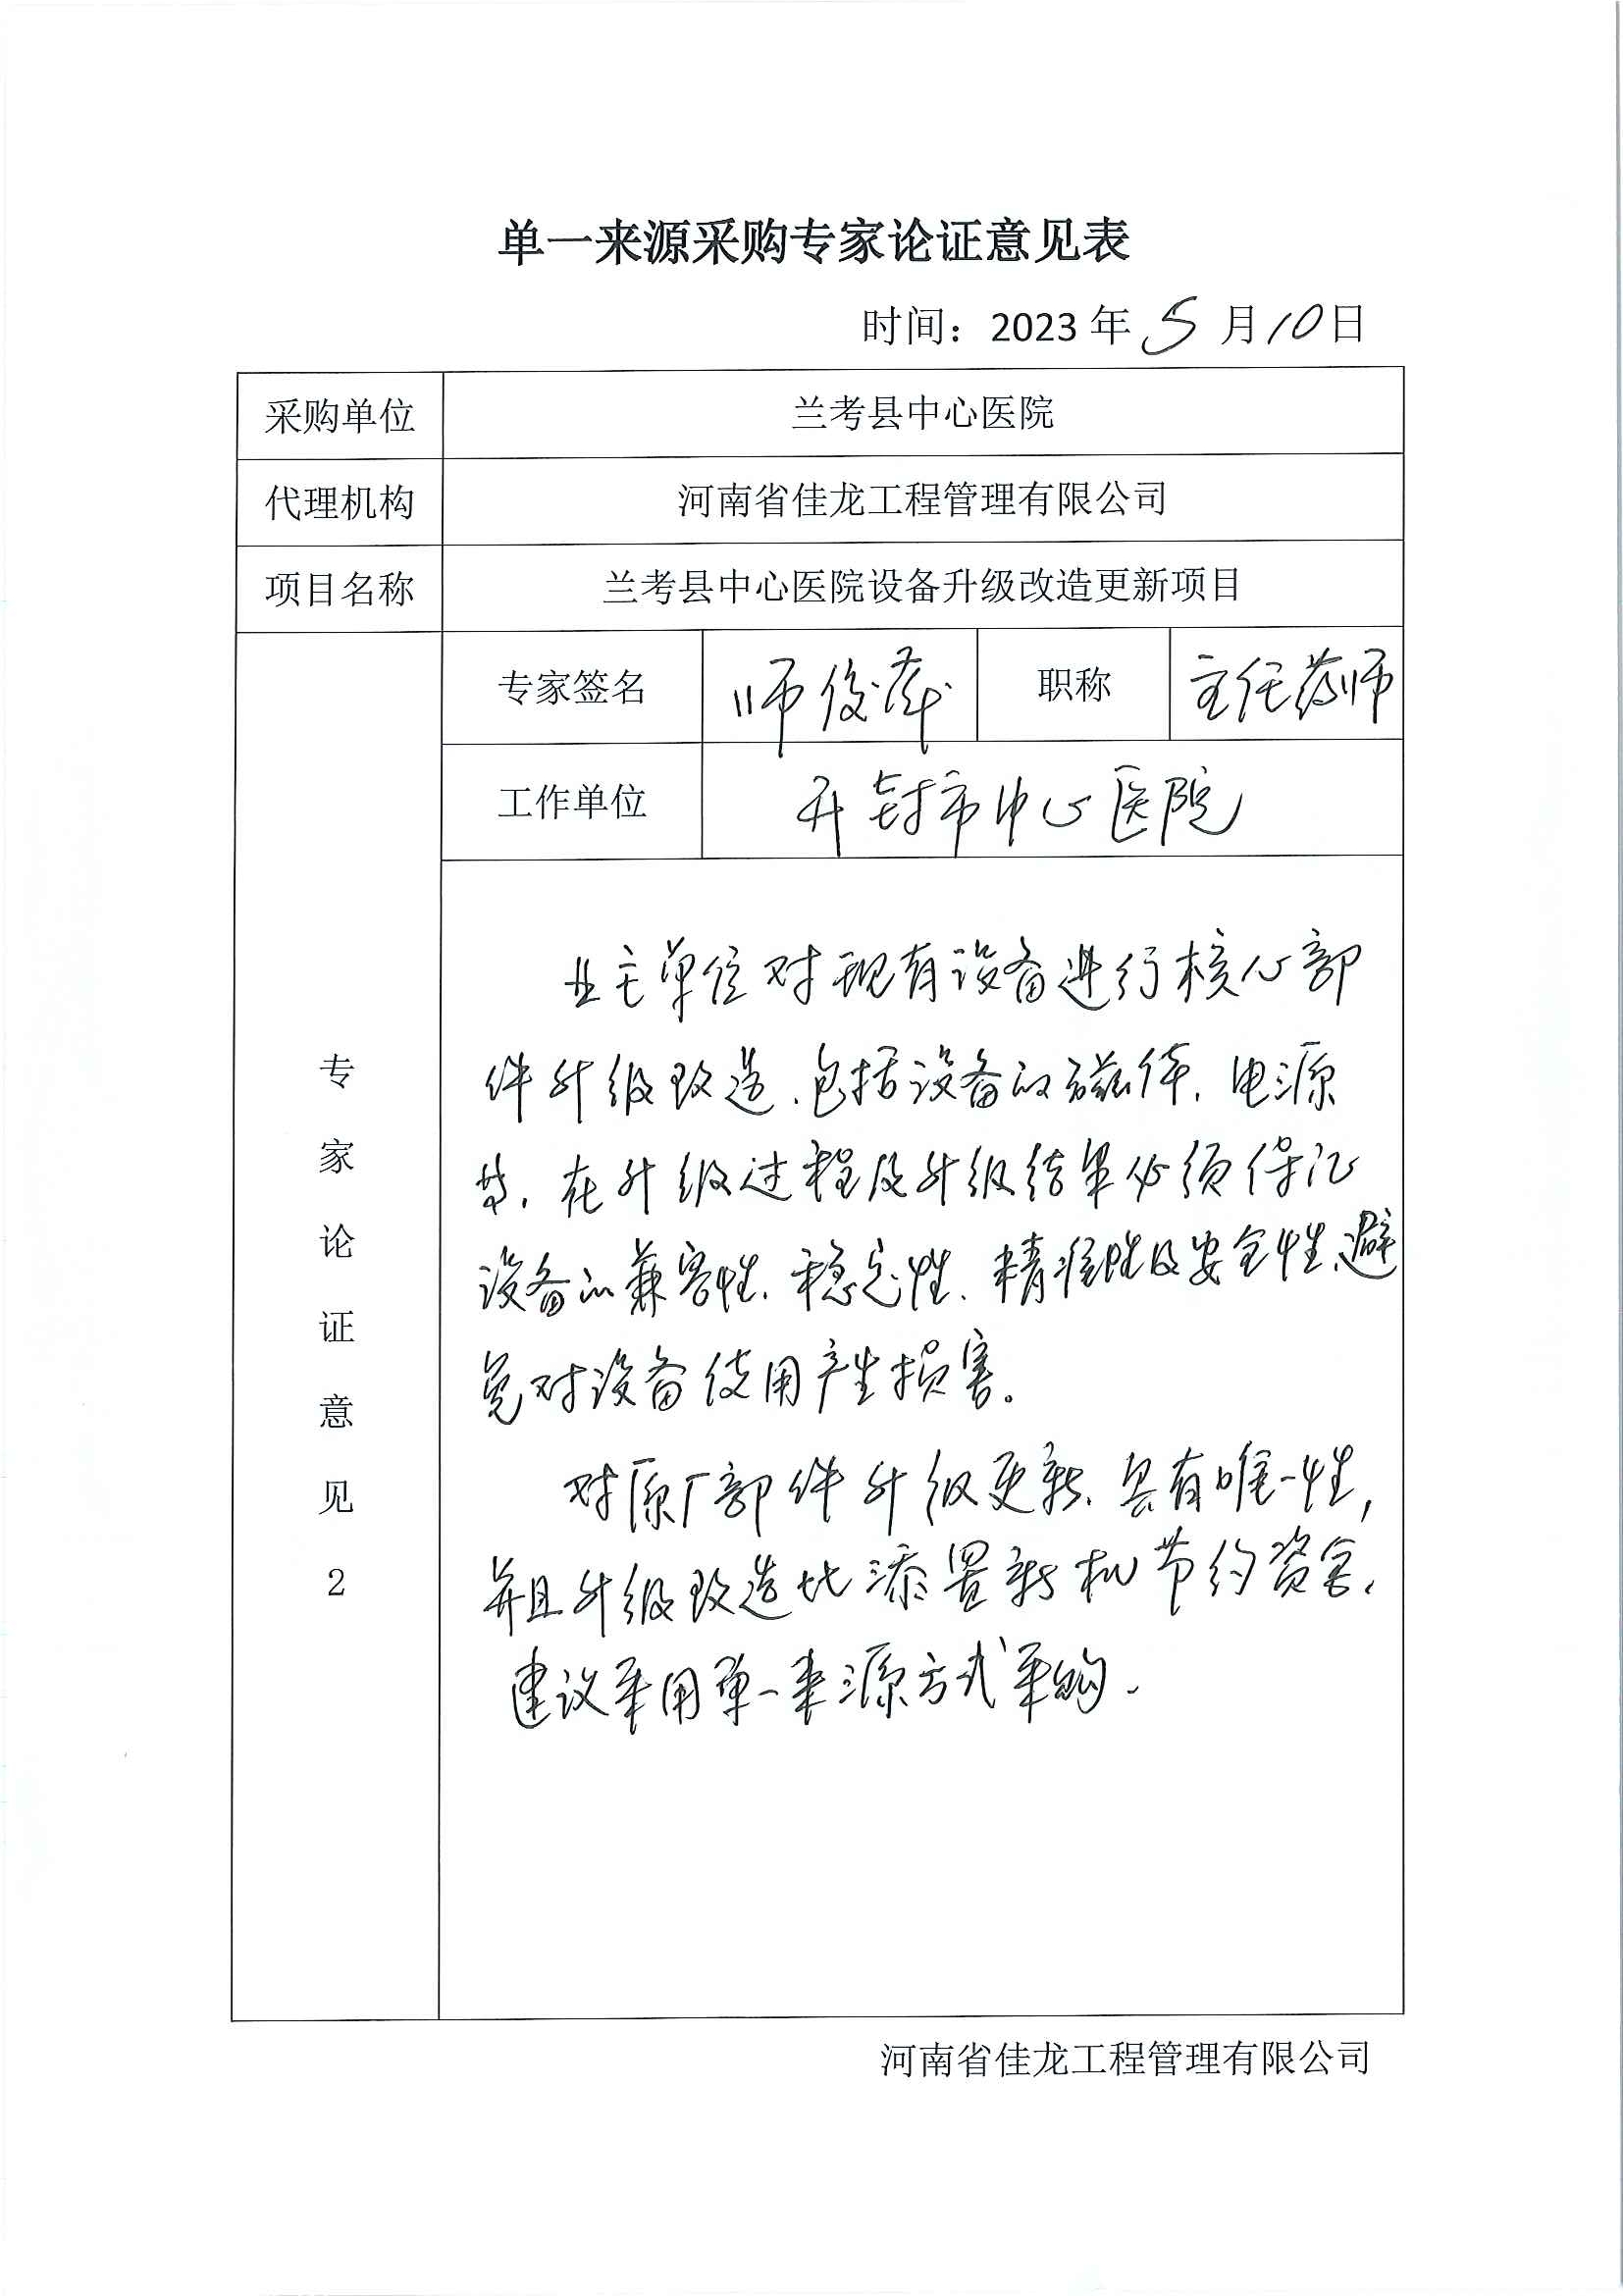 单一来源采购专家论证意见表
时间：2023 年 5 月 10 日
采购单位 兰考县中心医院
代理机构 河南省佳龙工程管理有限公司
项目名称 兰考县中心医院设备升级改造更新项目
专家签名 师俊 职称 主任药师
工作单位 开封市中心医院
专家论证意见2
业主单位对现有设备进行核心部
件升级改造、包括设备的磁体、电源
等，在升级过程及升级结果必须保证
设备的兼容性、稳定性、精准性及安全性、避
免对设备使用产生损害。
对原厂部件升级更新、具有唯一性，
并且升级改造比添置新机节约资金，
建议采用单一来源方式采购.
河南省佳龙工程管理有限公司